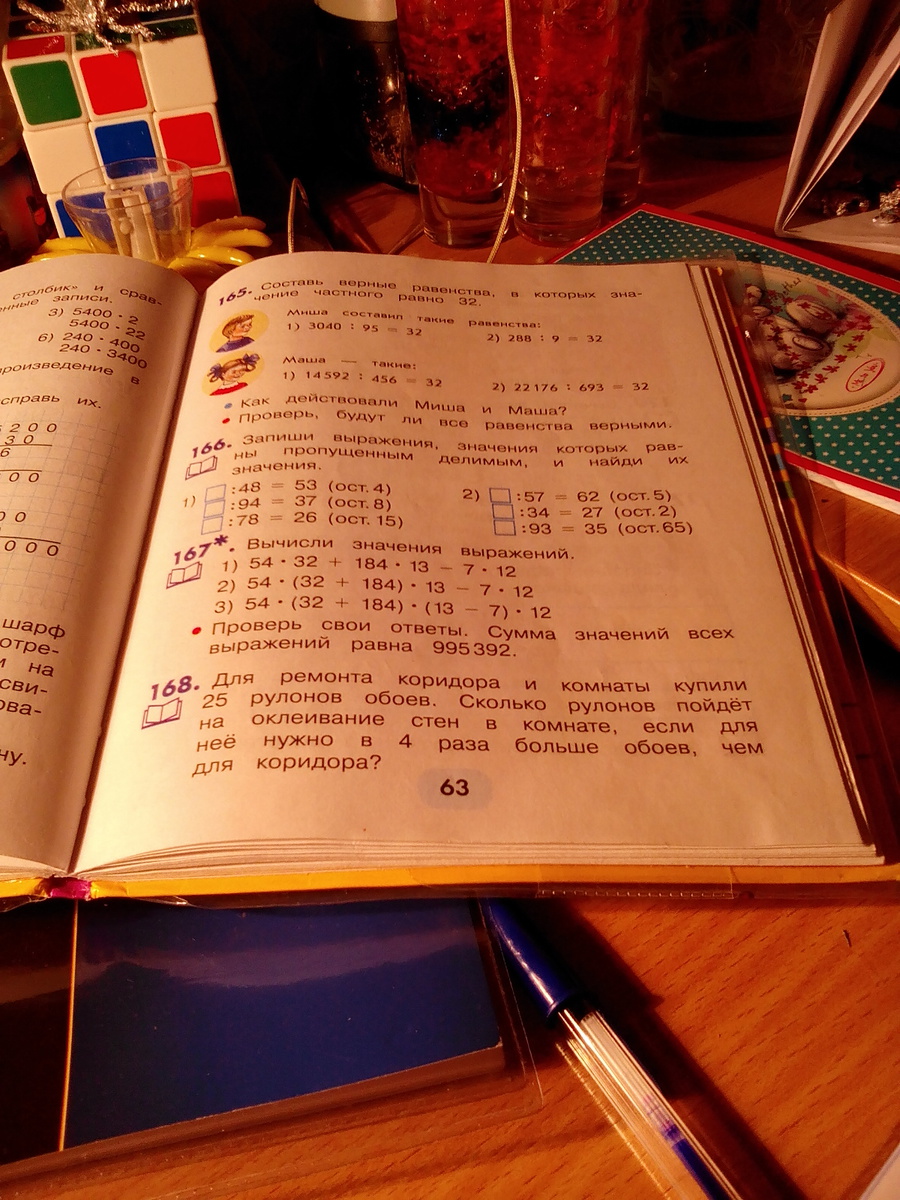 столбик» и срав-
енные записи.
3) 5400 · 2
5400 · 22
6) 240 · 400
240 · 3400
произведение в
справь их.
5200
30
6
00
00
000
шарф
отре-
и на
сви-
ова-
ну.
165. Составь верные равенства, в которых зна-
чение частного равно 32.
Миша составил такие равенства:
1) 3040 : 95 = 32 2) 288 : 9 = 32
Маша — такие:
1) 14592 : 456 = 32 2) 22176 : 693 = 32
• Как действовали Миша и Маша?
• Проверь, будут ли все равенства верными.
166. Запиши выражения, значения которых рав-
ны пропущенным делимым, и найди их
значения.
1) □ : 48 = 53 (ост. 4) 2) □ : 57 = 62 (ост. 5)
□ : 94 = 37 (ост. 8) □ : 34 = 27 (ост. 2)
□ : 78 = 26 (ост. 15) □ : 93 = 35 (ост. 65)
167*. Вычисли значения выражений.
1) 54 · 32 + 184 · 13 − 7 · 12
2) 54 · (32 + 184) · 13 − 7 · 12
3) 54 · (32 + 184) · (13 − 7) · 12
• Проверь свои ответы. Сумма значений всех
выражений равна 995392.
168. Для ремонта коридора и комнаты купили
25 рулонов обоев. Сколько рулонов пойдёт
на оклеивание стен в комнате, если для
неё нужно в 4 раза больше обоев, чем
для коридора?
63